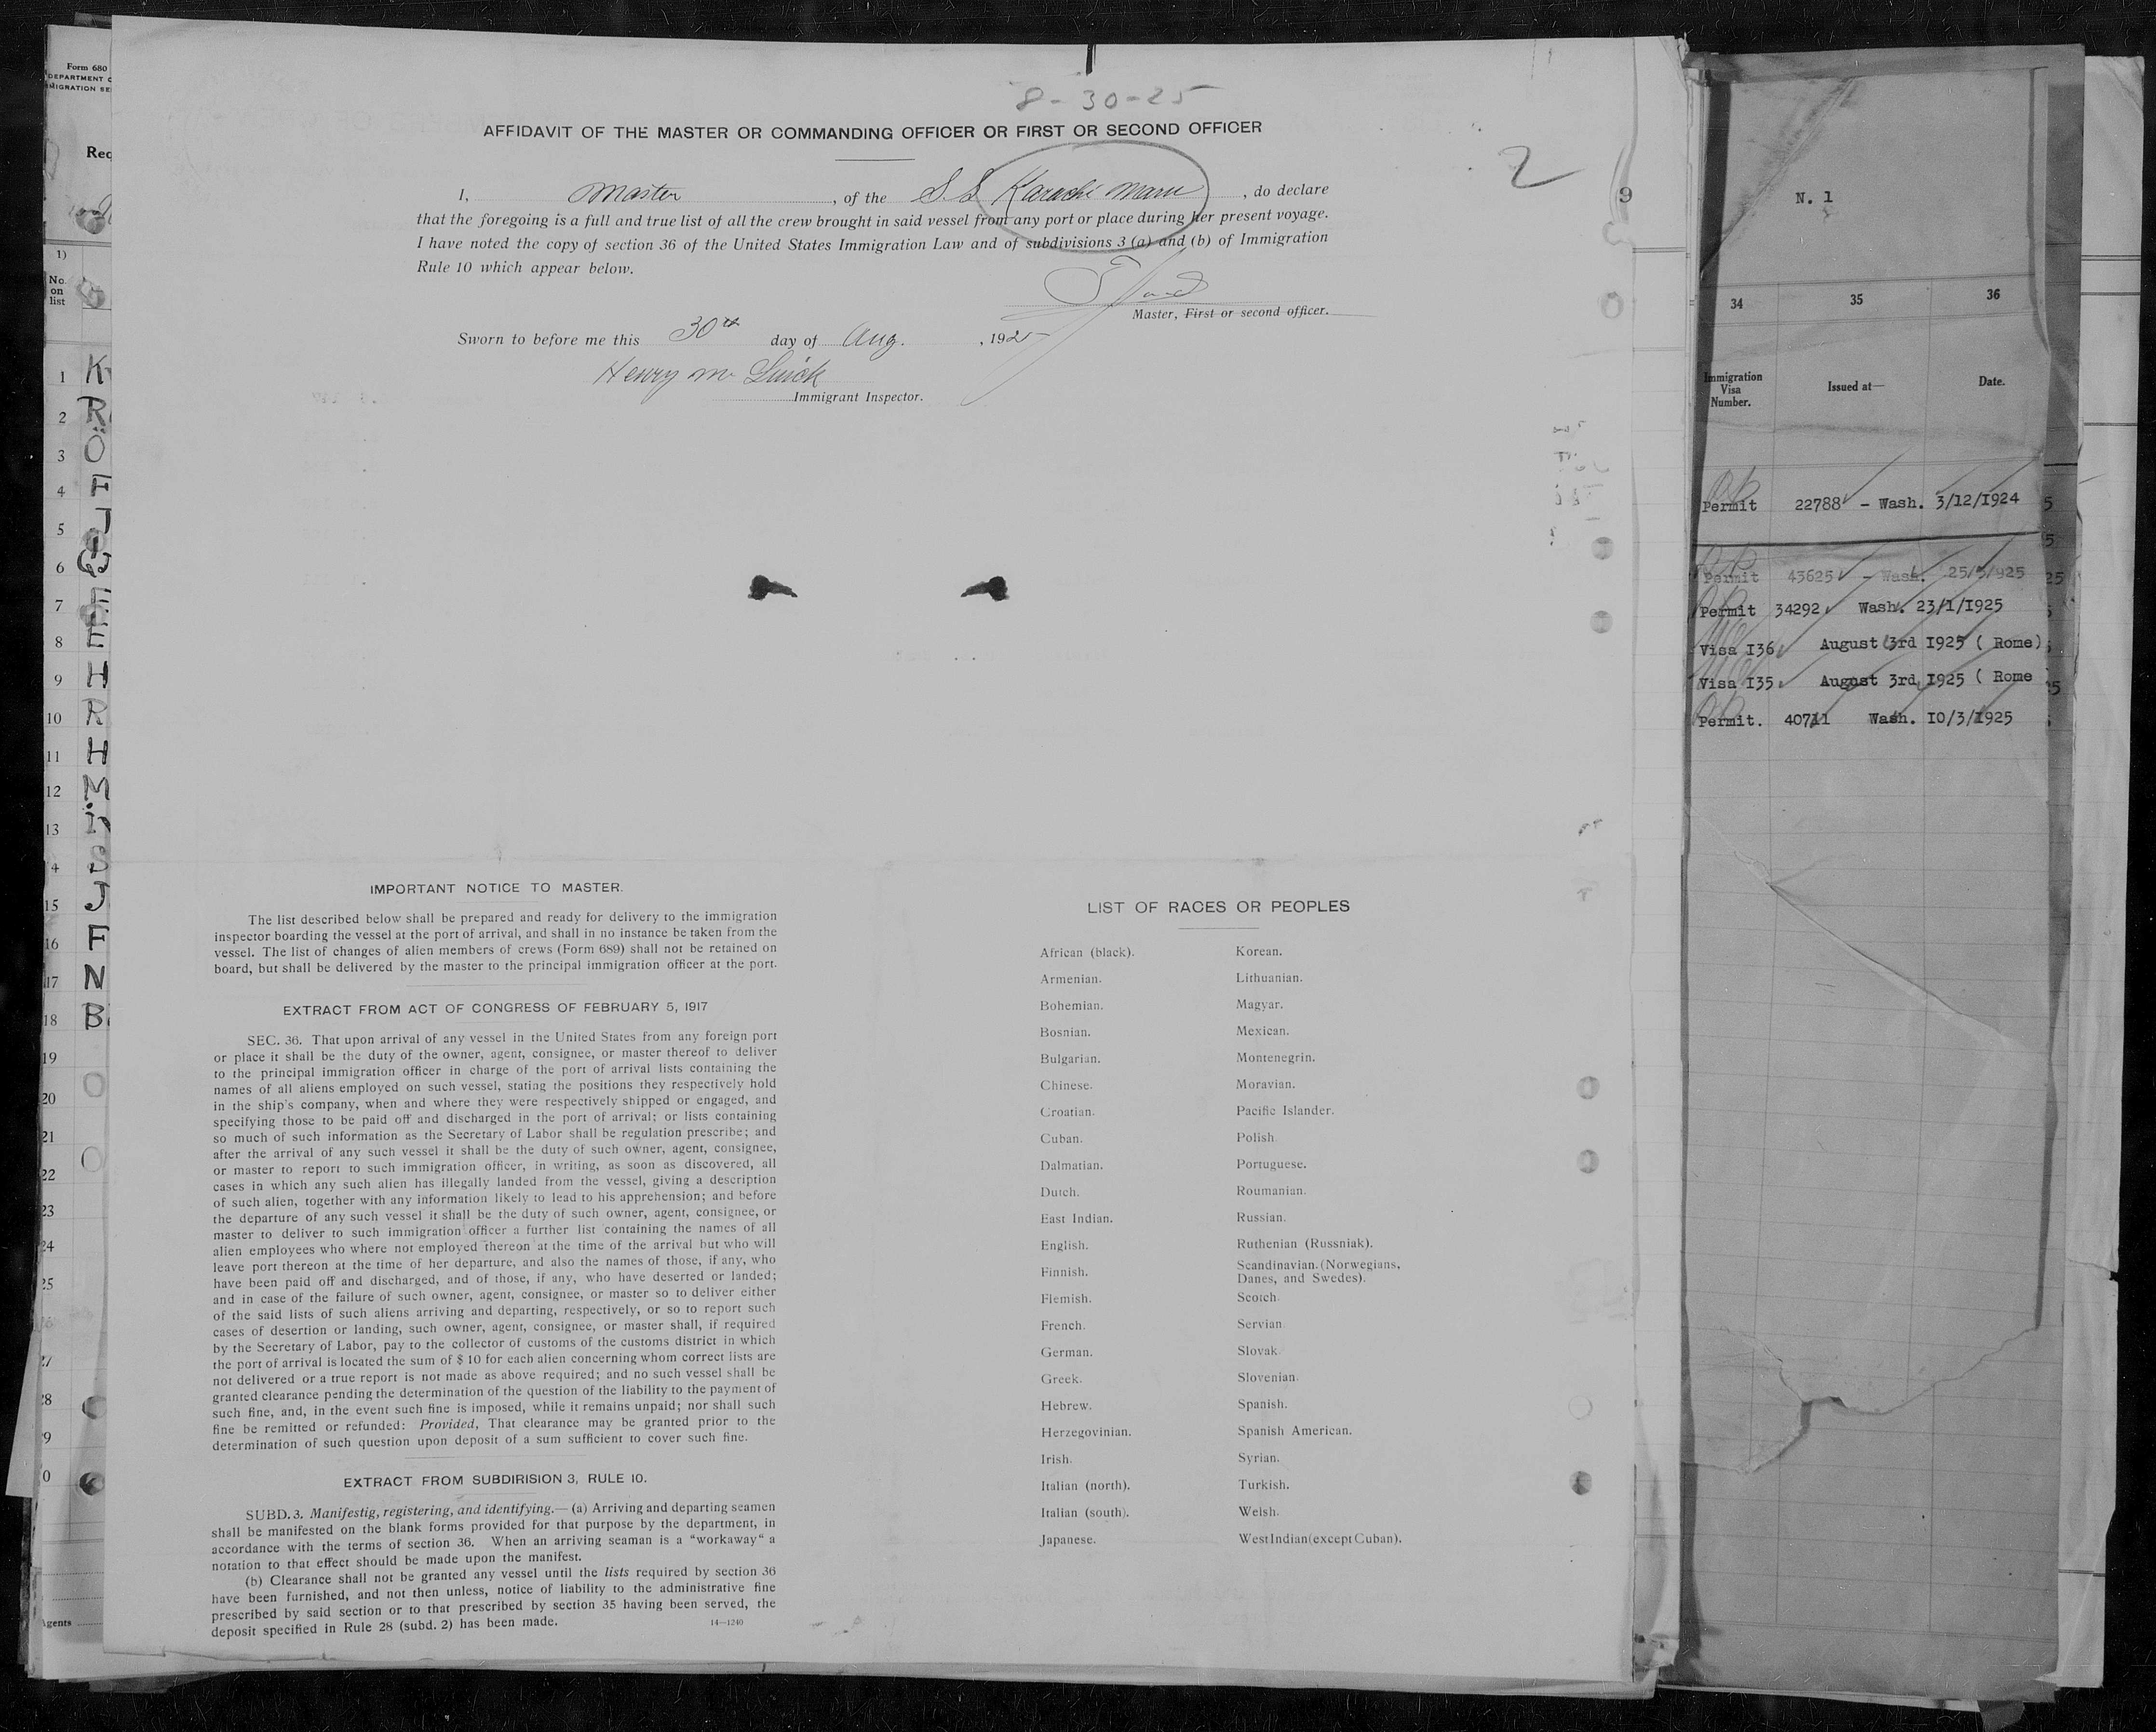 8-30-25
AFFIDAVIT OF THE MASTER OR COMMANDING OFFICER OR FIRST OR SECOND OFFICER
2
I, Master, of the S S Karachi Maru, do declare
that the foregoing is a full and true list of all the crew brought in said vessel from any port or place during her present voyage.
I have noted the copy of section 36 of the United States Immigration Law and of subdivisions 3 (a) and (b) of Immigration
Rule 10 which appear below.
Master, First or second officer.
Sworn to before me this 30th day of Aug., 1925
Henry
Immigrant Inspector.
IMPORTANT NOTICE TO MASTER.
The list described below shall be prepared and ready for delivery to the immigration
inspector boarding the vessel at the port of arrival, and shall in no instance be taken from the
vessel. The list of changes of alien members of crews (Form 689) shall not be retained on
board, but shall be delivered by the master to the principal immigration officer at the port.
EXTRACT FROM ACT OF CONGRESS OF FEBRUARY 5, 1917
SEC. 36. That upon arrival of any vessel in the United States from any foreign port
or place it shall be the duty of the owner, agent, consignee, or master thereof to deliver
to the principal immigration officer in charge of the port of arrival lists containing the
names of all aliens employed on such vessel, stating the positions they respectively hold
in the ship's company, when and where they were respectively shipped or engaged, and
specifying those to be paid off and discharged in the port of arrival; or lists containing
so much of such information as the Secretary of Labor shall be regulation prescribe; and
after the arrival of any such vessel it shall be the duty of such owner, agent, consignee,
or master to report to such immigration officer, in writing, as soon as discovered, all
cases in which any such alien has illegally landed from the vessel, giving a description
of such alien, together with any information likely to lead to his apprehension; and before
the departure of any such vessel it shall be the duty of such owner, agent, consignee, or
master to deliver to such immigration officer a further list containing the names of all
alien employees who where not employed thereon at the time of the arrival but who will
leave port thereon at the time of her departure, and also the names of those, if any, who
have been paid off and discharged, and of those, if any, who have deserted or landed;
and in case of the failure of such owner, agent, consignee, or master so to deliver either
of the said lists of such aliens arriving and departing, respectively, or so to report such
cases of desertion or landing, such owner, agent, consignee, or master shall, if required
by the Secretary of Labor, pay to the collector of customs of the customs district in which
the port of arrival is located the sum of $ 10 for each alien concerning whom correct lists are
not delivered or a true report is not made as above required; and no such vessel shall be
granted clearance pending the determination of the question of the liability to the payment of
such fine, and, in the event such fine is imposed, while it remains unpaid; nor shall such
fine be remitted or refunded: Provided, That clearance may be granted prior to the
determination of such question upon deposit of a sum sufficient to cover such fine.
EXTRACT FROM SUBDIRISION 3, RULE 10.
SUBD. 3. Manifestig, registering, and identifying.— (a) Arriving and departing seamen
shall be manifested on the blank forms provided for that purpose by the department, in
accordance with the terms of section 36. When an arriving seaman is a "workaway" a
notation to that effect should be made upon the manifest.
(b) Clearance shall not be granted any vessel until the lists required by section 36
have been furnished, and not then unless, notice of liability to the administrative fine
prescribed by said section or to that prescribed by section 35 having been served, the
deposit specified in Rule 28 (subd. 2) has been made.
14—1240
LIST OF RACES OR PEOPLES
African (black).
Armenian.
Bohemian.
Bosnian.
Bulgarian.
Chinese.
Croatian.
Cuban.
Dalmatian.
Dutch.
East Indian.
English.
Finnish.
Flemish.
French.
German.
Greek.
Hebrew.
Herzegovinian.
Irish.
Italian (north).
Italian (south).
Japanese.
Korean.
Lithuanian.
Magyar.
Mexican.
Montenegrin.
Moravian.
Pacific Islander.
Polish.
Portuguese.
Roumanian.
Russian.
Ruthenian (Russniak).
Scandinavian.(Norwegians,
Danes, and Swedes).
Scotch.
Servian.
Slovak.
Slovenian.
Spanish.
Spanish American.
Syrian.
Turkish.
Welsh.
West Indian (except Cuban).
Form 680
DEPARTMENT
No.
on
list
1 K
2 R
3 Ö
4 F
5 J
6
7 F
8 E
9 H
10 R
11 H
12 M
13
4 S
15 J
16 F
17 N
18 B
19
20
21
22
23
24
25
Agents
9
N. 1
34 35 36
Immigration
Visa
Number.
Issued at—
Date.
Permit 22788 - Wash. 3/12/1924
Permit 43625 - Wash. 25/5/925
Permit 34292 Wash. 23/1/1925
Visa I36 August 3rd 1925 ( Rome)
Visa I35 August 3rd 1925 ( Rome
Permit. 40711 Wash. 10/3/1925